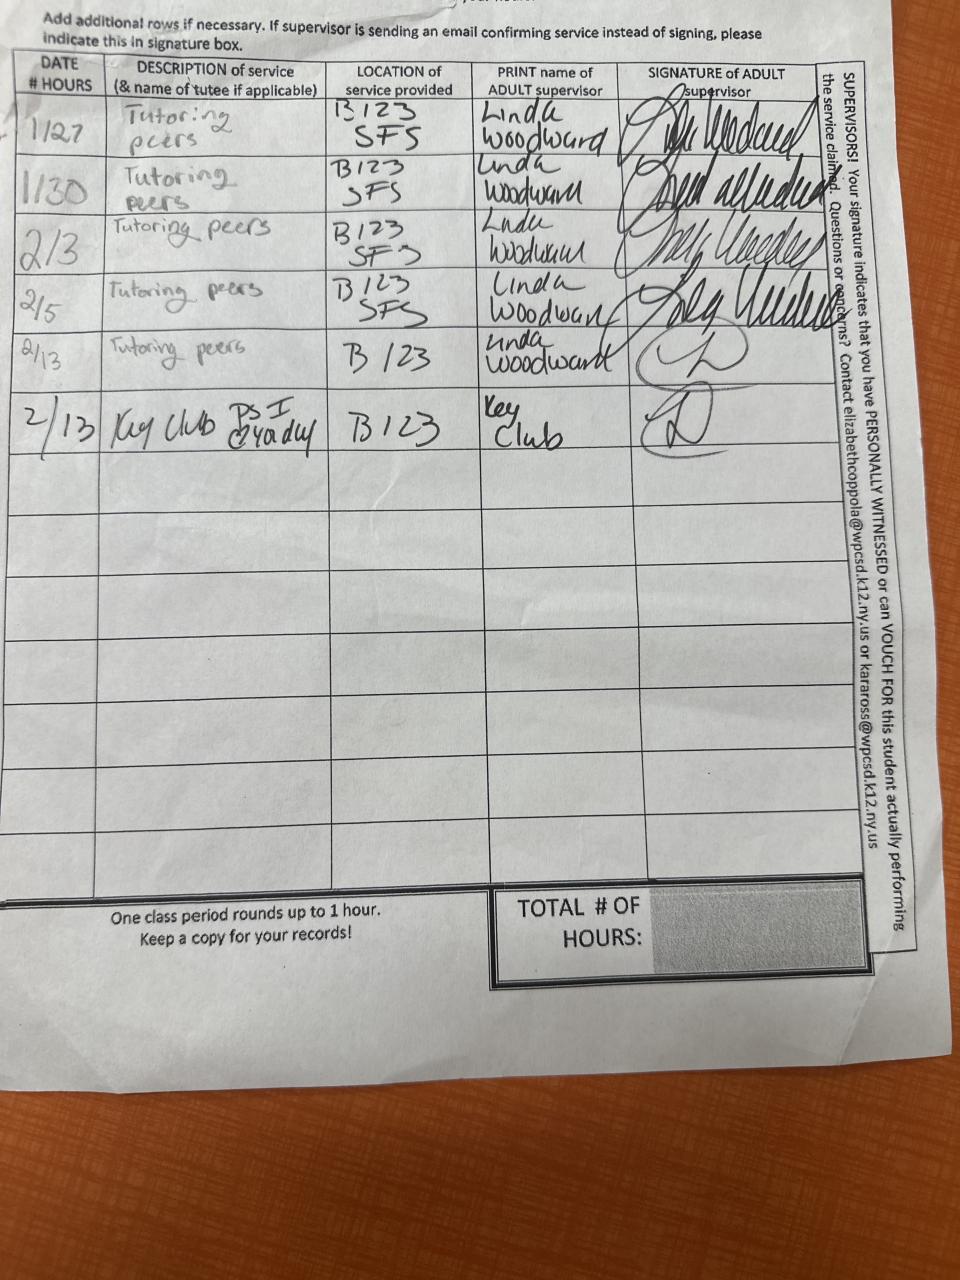 your hours.
Add additional rows if necessary. If supervisor is sending an email confirming service instead of signing, please
indicate this in signature box.
DATE
# HOURS
DESCRIPTION of service
(& name of tutee if applicable)
LOCATION of
service provided
PRINT name of
ADULT supervisor
SIGNATURE of ADULT
supervisor
1/27
Tutoring
peers
B123
SFS
Linda
Woodward
1/30
Tutoring
peers
B123
SFS
Linda
Woodward
2/3
Tutoring peers
B123
SFS
Linda
Woodward
2/5
Tutoring peers
B123
SFS
Linda
Woodward
2/13
Tutoring peers
B 123
Linda
Woodward
2/13
Key Club
B 123
Key
Club
One class period rounds up to 1 hour.
Keep a copy for your records!
TOTAL # OF
HOURS:
SUPERVISORS! Your signature indicates that you have PERSONALLY WITNESSED or can VOUCH FOR this student actually performing
the service claimed. Questions or concerns? Contact elizabethcoppola@wpcsd.k12.ny.us or karaross@wpcsd.k12.ny.us